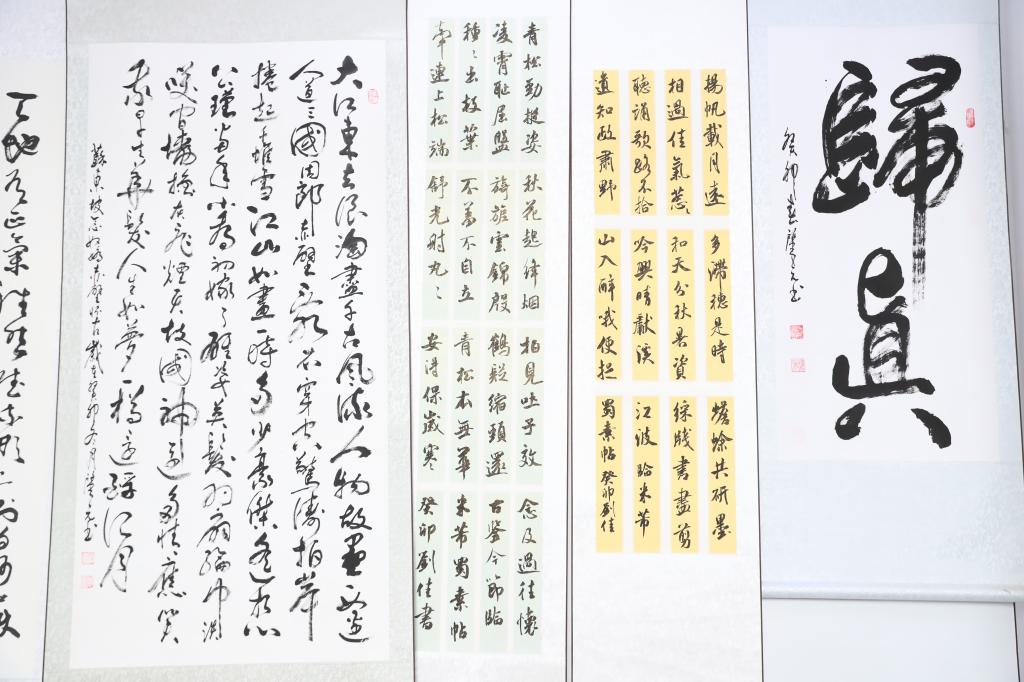 歸眞
癸卯
揚帆載月遠
相過佳氣蔥〻
聽誦歌路不拾
遺知政肅野
多滯穗是時
和天分秋暑資
吟興晴獻溪
山入醉哦便捉
蟾蜍共研墨
綵牋書盡剪
江波臨米芾
蜀素帖癸卯劉佳
青松勁挺姿
凌霄恥屈盤
種〻出枝葉
牽連上松端
秋花起絳烟
旖旎雲錦殷
不羞不自立
舒光射丸〻
柏見吐子效
鶴疑縮頸還
青松本無華
安得保歲寒
念及過往懷
古鑒今節臨
米芾蜀素帖
癸卯劉佳書
大江東去浪淘盡千古風流人物故壘西邊
人道三國周郎赤壁亂石穿空驚濤拍岸
捲起千堆雪江山如畫一時多少豪傑遙想
公瑾當年小喬初嫁了雄姿英發羽扇綸巾談
笑間檣櫓灰飛煙滅故國神遊多情應笑
我早生華髮人生如夢一樽還酹江月
蘇東坡念奴嬌赤壁懷古歲在癸卯冬月
天地有正氣雜然賦流形下則為河嶽